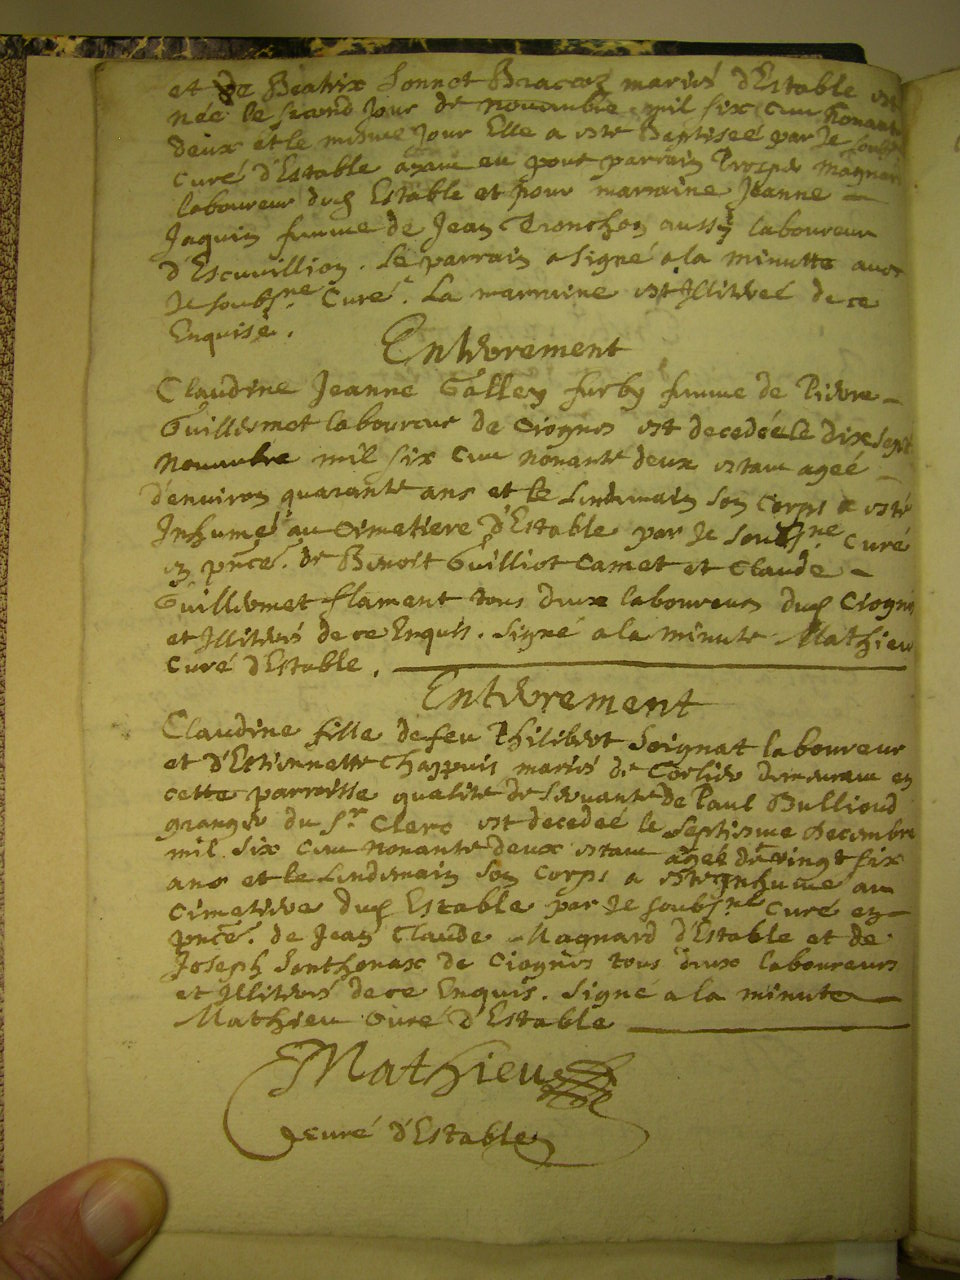 et de Beatrix Sonnot Bracoz mariés d'Estable est
née le second jour de novembre mil six cens nonante
deux et le mesme jour Elle a esté Baptiseé par Je soub
Curé d'Estable ayant eu pour parrain Prosper Magnard
laboureur dud Estable et pour marraine Jeanne
Jaquin femme de Jean Tronchon aussy laboureur
d'Escuvillion. Le parrain a signé a la minutte avec
Je soubsne Curé. La marraine est Illiterée de ce
Enquise.
Enterrement
Claudine Jeanne Galley furby femme de Pierre
Guillermet laboureur de Ciognes est decedée le dix sept
Novembre mil six cens nonante deux estant ageé
d'environ quarante ans et le Lendemain son corps a esté
Inhumé au Cimetiere d'Estable par Je soubsne Curé
en pnce. de Benoit Guilliot Camet et Claude
Guillermet flament tous deux laboureurs dud Ciognes
et Illiterés de ce Enquis. Signé a la minute Mathieu
Curé d'Estable.
Enterrement
Claudine fille de feu Philibert Soignat laboureur
et d'Estiennette Chappuis mariés de Corlier demeurant en
cette parroisse qualité de servante de Paul Bullioud
granger du Sr Clerc est decedeé le septiesme Decembre
mil six cens nonante deux estant ageé de vingt six
ans et le Lendemain son Corps a esté Inhumé au
Cimetiere dud Estable par Je soubsne Curé en
pnce. de Jean Claude Magnard d'Estable et de
Joseph Sonthonax de Ciognes tous deux laboureurs
et Illiterés de ce Enquis. Signé a la minute
Mathieu Curé d'Estable
Mathieu
curé d'Estable